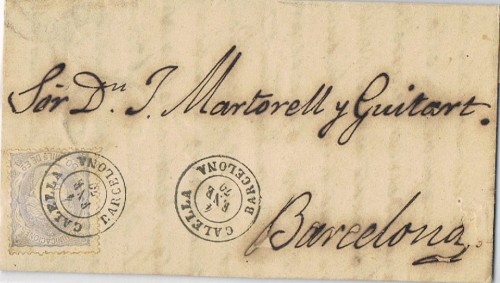 Sör Dn. J. Martorell y Guitart.
CALELLA
4
ENE
70
BARCELONA
CALELLA
4
ENE
70
BARCELONA
Barcelona